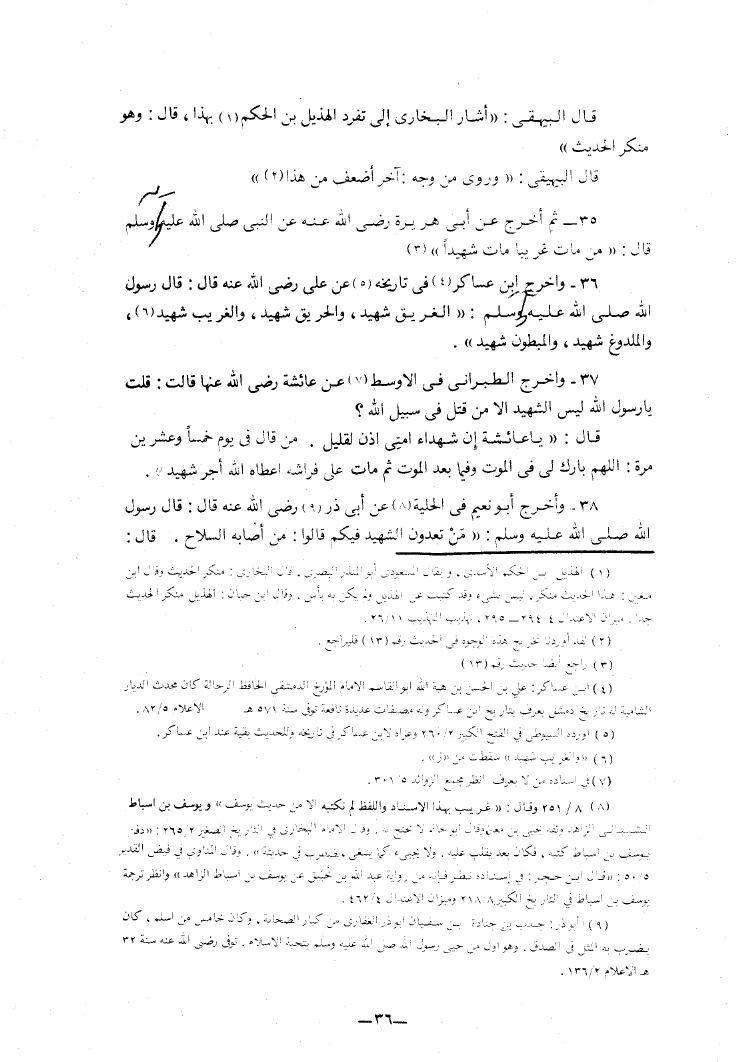 قال البيهقى : «أشار البخارى إلى تفرد الهذيل بن الحكم(١) بهذا ، قال : وهو
منكر الحديث »
قال البيهقى : « وروى من وجه :آخر أضعف من هذا(٢) »
٣٥ــ ثم أخرج عن أبى هريرة رضى الله عنه عن النبى صلى الله عليه وسلم
قال : « من مات غريبا مات شهيداً » (٣)
٣٦ ـ واخرج ابن عساكر(٤) فى تاريخه(٥) عن على رضى الله عنه قال : قال رسول
الله صلى الله عليه وسلم : « الغريق شهيد ، والحريق شهيد ، والغريب شهيد(٦) ،
والملدوغ شهيد ، والمبطون شهيد» .
٣٧ ـ واخرج الطبرانى فى الاوسط(٧) عن عائشة رضى الله عنها قالت : قلت
يارسول الله ليس الشهيد الا من قتل فى سبيل الله ؟
قال : « ياعائشة إن شهداء امتى اذن لقليل . من قال فى يوم خمساً وعشرين
مرة : اللهم بارك لى فى الموت وفيا بعد الموت ثم مات على فراشه اعطاه الله أجر شهيد » .
٣٨ ـ وأخرج أبونعيم فى الحلية(٨) عن أبى ذر(٩) رضى الله عنه قال : قال رسول
الله صلى الله عليه وسلم : « مَنْ تعدون الشهيد فيكم قالوا : من أصابه السلاح . قال :
(١) الهذيل بن الحكم الأسدى ، ويقال المسعودى أبو المنذر البصرى . قال البخارى : منكر الحديث وقال ابن
معين : هذا الحديث منكر ، ليس بشىء وقد كتبت عن الهذيل ولم يكن به بأس . وقال ابن حبان : الهذيل منكر الحديث
جدا . ميزان الاعتدال ٢٩٤/٤ ــ ٢٩٥ ، تهذيب التهذيب ٢٦/١١ .
(٢) لقد أوردنا تخريج هذه الوجوه فى الحديث رقم (١٣) فليراجع .
(٣) راجع أيضا حديث رقم (١٣)
(٤) ابن عساكر : علي بن الحسن بن هبة الله ابو القاسم الامام المؤرخ الدمشقى الحافظ الرحالة كان محدث الديار
الشامية له تاريخ دمشق يعرف بتاريخ ابن عساكر وله مصنفات عديدة نافعة توفى سنة ٥٧١ هـ الاعلام ٨٢/٥ .
(٥) اورده السيوطى في الفتح الكبير ٢٦٠/٢ وعزاه لابن عساكر في تاريخه وللحديث بقية عند ابن عساكر .
(٦) «والغريب شهيد » سقطت من «ز» .
(٧) في اسناده من لا يعرف انظر مجمع الزوائد ٣٠١/٥
(٨) ٨ / ٢٥١ وقال : « غريب بهذا الاسناد واللفظ لم نكتبه الا من حديث يوسف » ويوسف بن اسباط
الشيبانى الزاهد وثقه يحيى بن معين وقال ابو حاتم لا يحتج به . وقال الامام البخارى في التاريخ الصغير ٢٦٥/٢ : «دفن
يوسف بن اسباط كتبه ، فكان بعد يقلب عليه . ولا يجىء كما ينبغى ، يضطرب في حديثه » . وقال المناوى في فيض القدير
٥٠/٥ : «قال ابن حجر : في إسناده نظر فإنه من رواية عبد الله بن خبيق عن يوسف بن اسباط الزاهد » وانظر ترجمة
يوسف بن اسباط في التاريخ الكبير ٢١٨/٨ وميزان الاعتدال ٤٦٢/٤ .
(٩) أبوذر : جندب بن جنادة بن سفيان ابو ذر الغفارى من كبار الصحابة ، وكان خامس من اسلم ، كان
يضرب به المثل في الصدق . وهو اول من حيى رسول الله صلى الله عليه وسلم بتحية الاسلام . توفى رضى الله عنه سنة ٣٢
هـ الاعلام ١٣٦/٢ .
ــ٣٦ــ